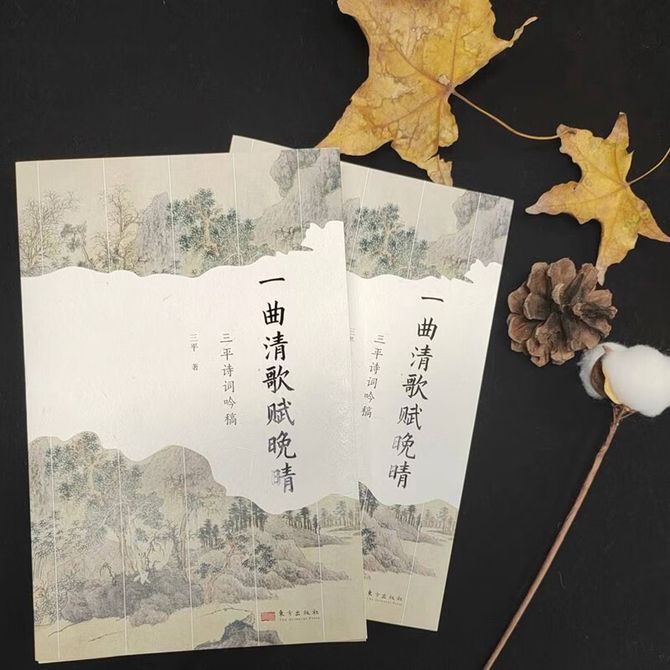 一曲清歌赋晚晴
三平诗词吟稿
三平 著
東方出版社
The Oriental Press
一曲清歌赋晚晴
三平诗词吟稿
三平